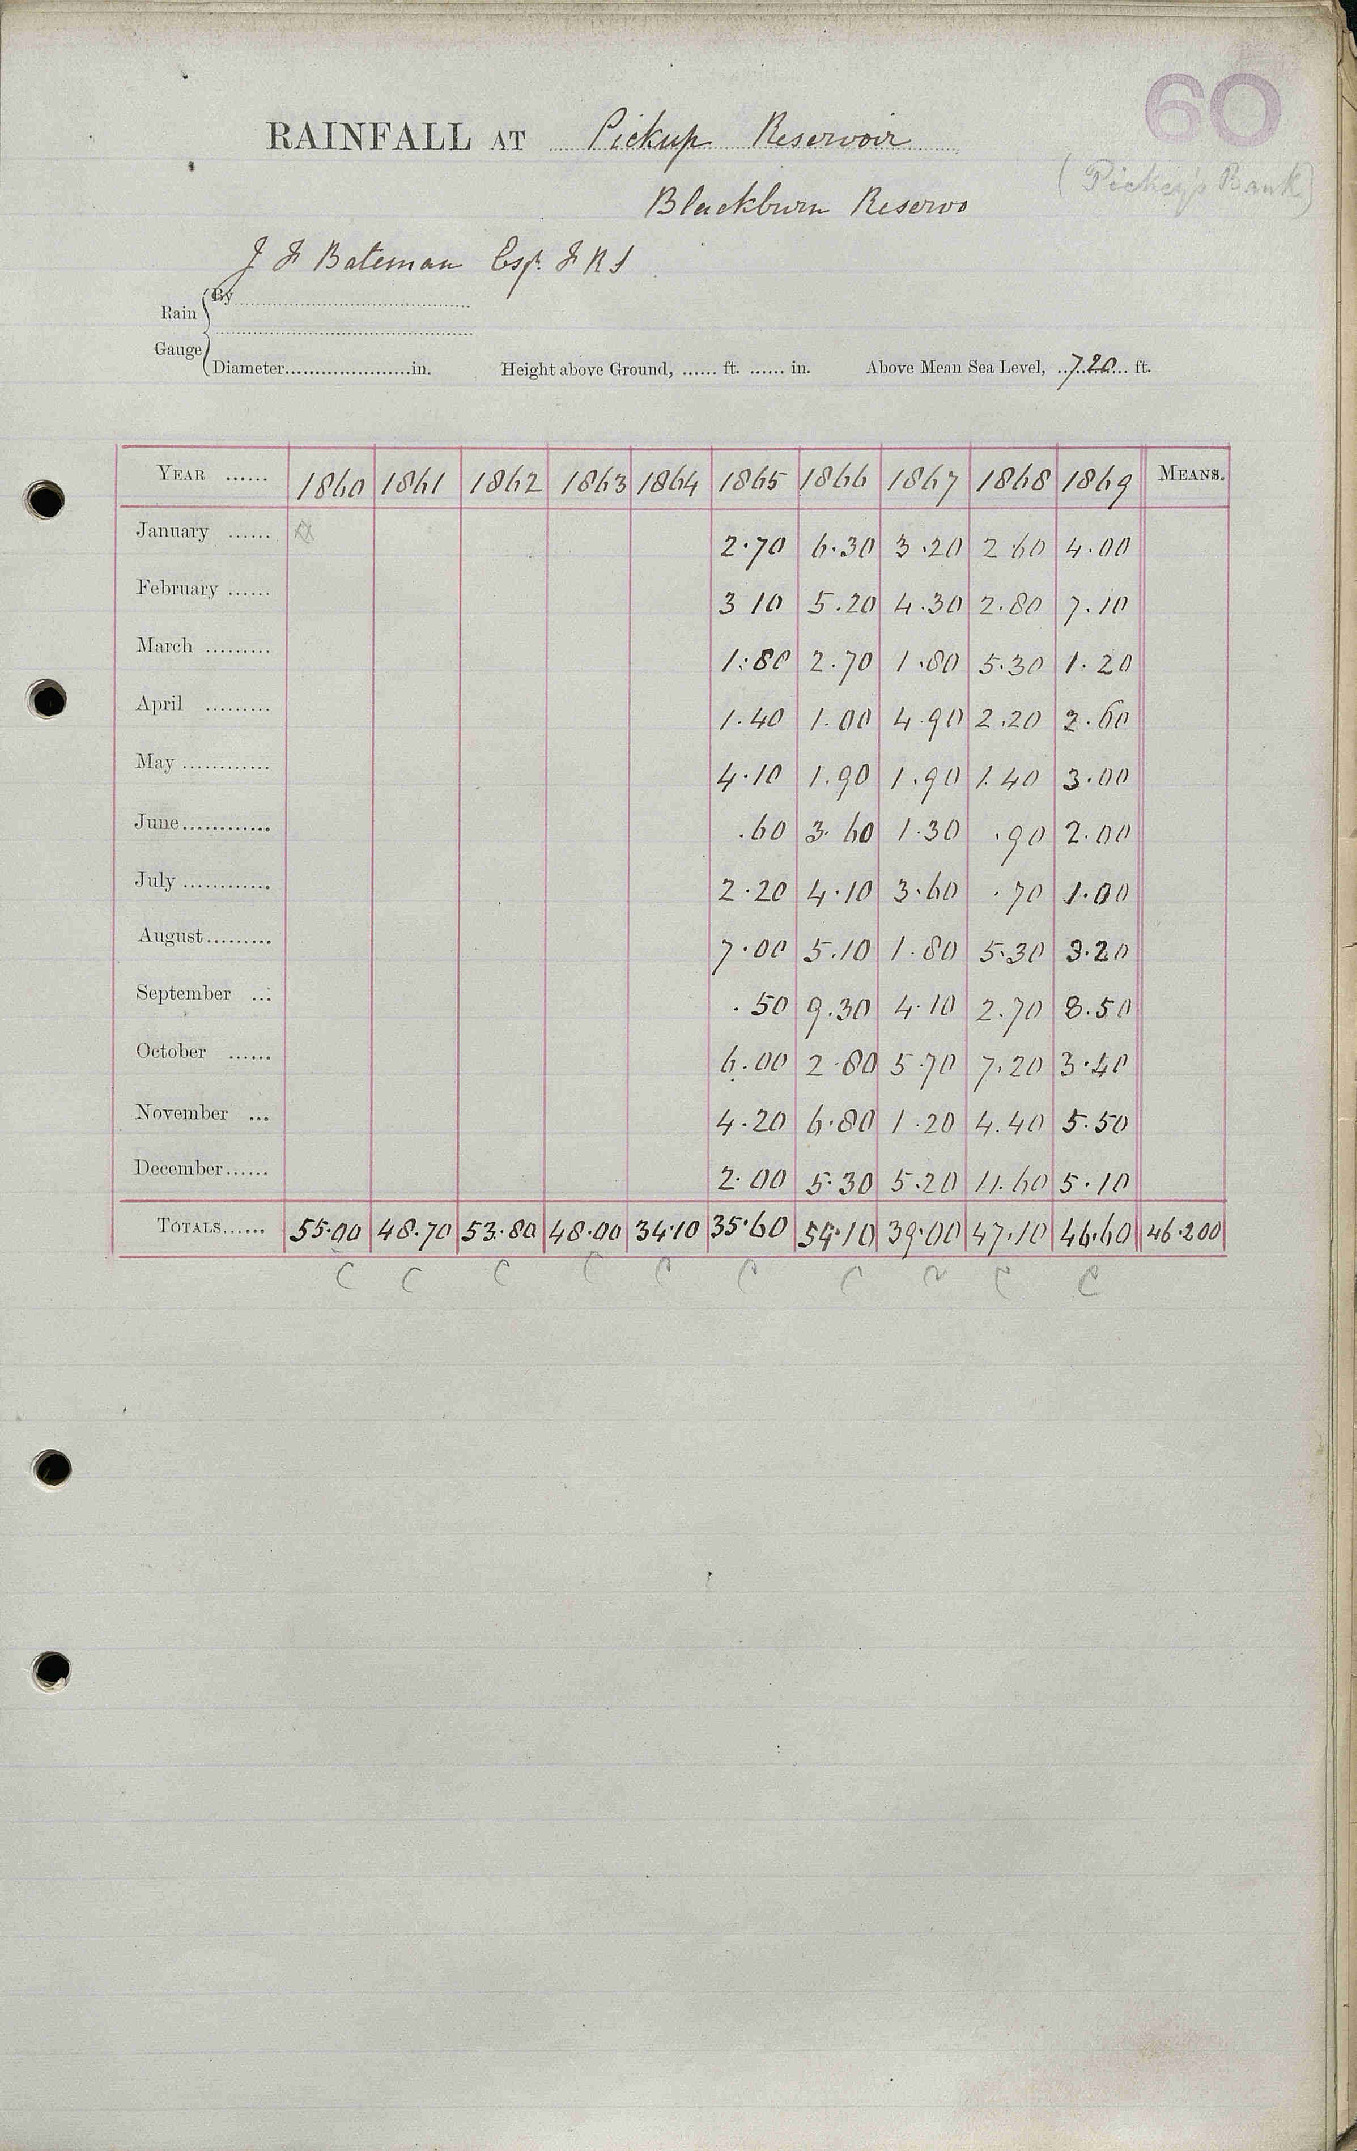 60
RAINFALL AT Pickup Reservoir
(Pickup Bank)
Blackburn Reservo
J F Bateman Esqr. F R S
Rain Gauge { By
Diameter in. Height above Ground, ...... ft. ...... in. Above Mean Sea Level, 720 ft.
YEAR ...... 1860 1861 1862 1863 1864 1865 1866 1867 1868 1869 MEANS.
January ...... 2.70 6.30 3.20 2 60 4.00
February ...... 3 10 5.20 4.30 2.80 7.10
March ......... 1.80 2.70 1.80 5.30 1.20
April ......... 1.40 1.00 4.90 2.20 2.60
May ............ 4.10 1.90 1.90 1.40 3.00
June ............ .60 3.60 1.30 .90 2.00
July ............ 2.20 4.10 3.60 .70 1.00
August ......... 7.00 5.10 1.80 5.30 3.20
September ... .50 9.30 4.10 2.70 8.50
October ...... 6.00 2.80 5.70 7.20 3.40
November ... 4.20 6.80 1.20 4.40 5.50
December ...... 2.00 5.30 5.20 11.60 5.10
TOTALS ...... 55.00 48.70 53.80 48.00 34.10 35.60 54.10 39.00 47.10 46.60 46.200
C C C C C C C C C